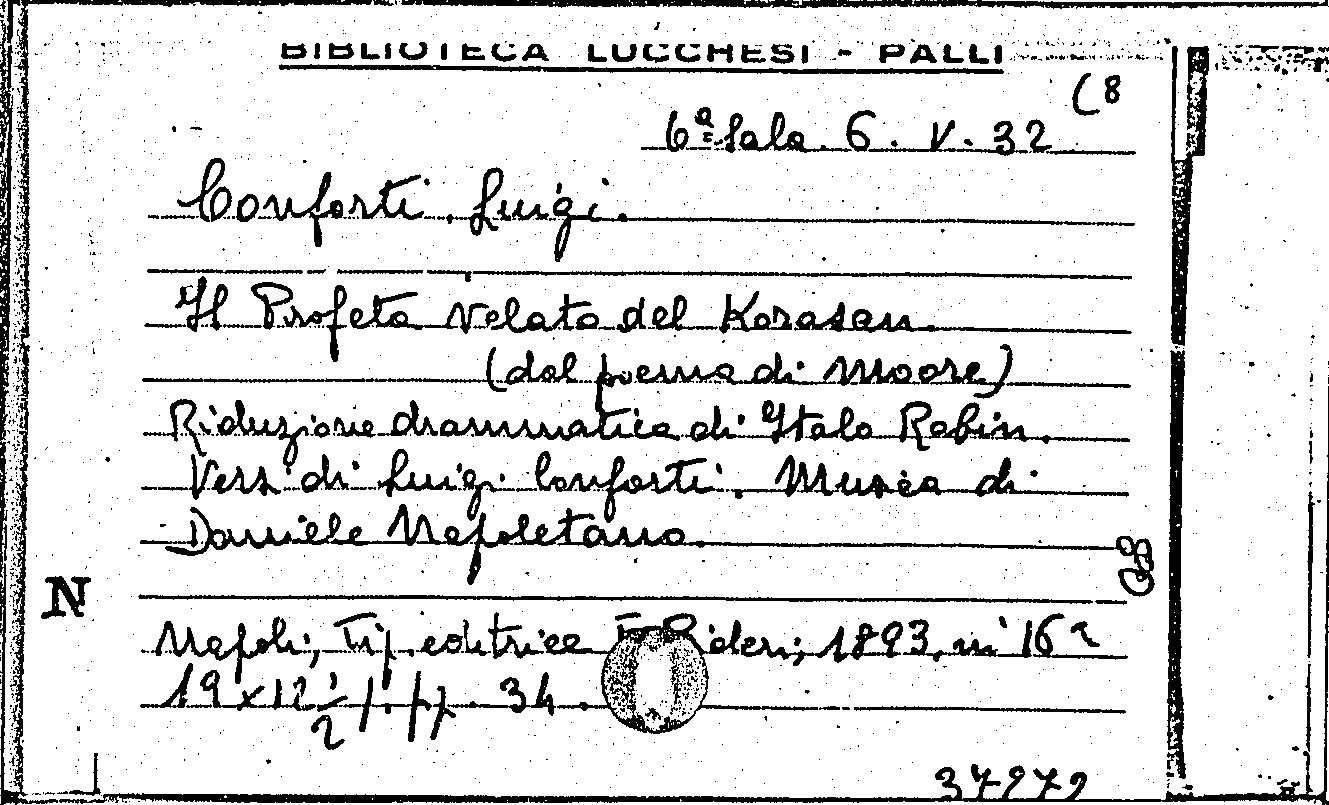 BIBLIOTECA LUCCHESI - PALLI
(8
6ª Sala. 6. V. 32
Conforti. Luigi.
Il Profeta velato del Korasan.
(dal poema di Moore)
Riduzione drammatica di Italo Rabin.
Versi di Luigi Conforti. Musica di
Daniele Napoletano.
N
Napoli, Tip. editrice F. Bideri, 1893, in 16º
19 x 12 1/2 pp. 34.
37979